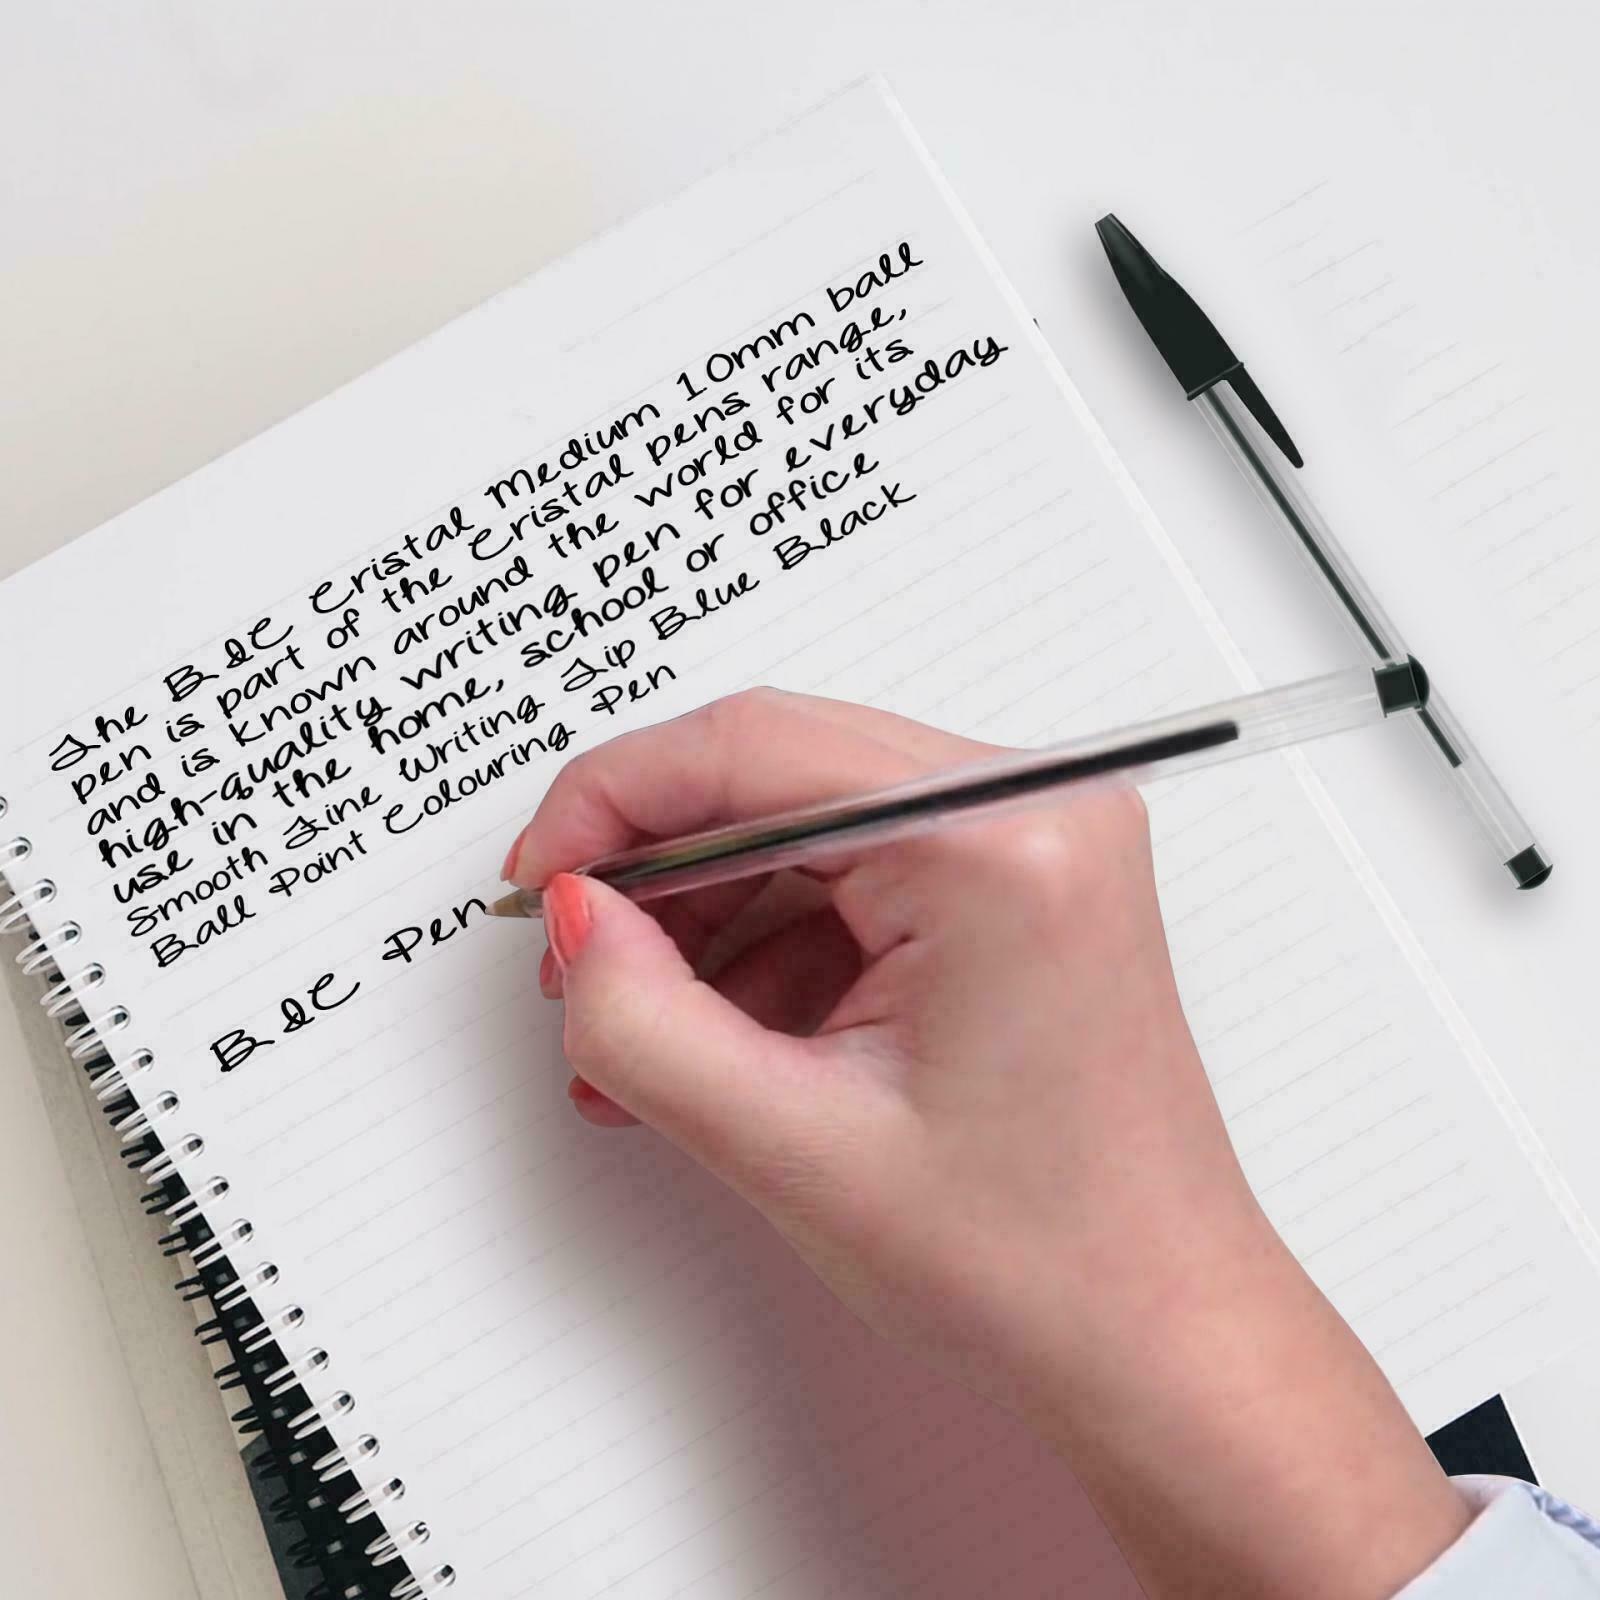 The BIC Cristal Medium 10mm ball
pen is part of the Cristal pens range,
and is known around the world for its
high-quality writing pen for everyday
use in the home, school or office
Smooth Fine Writing Tip Blue Black
Ball Point Colouring Pen
BIC Pen